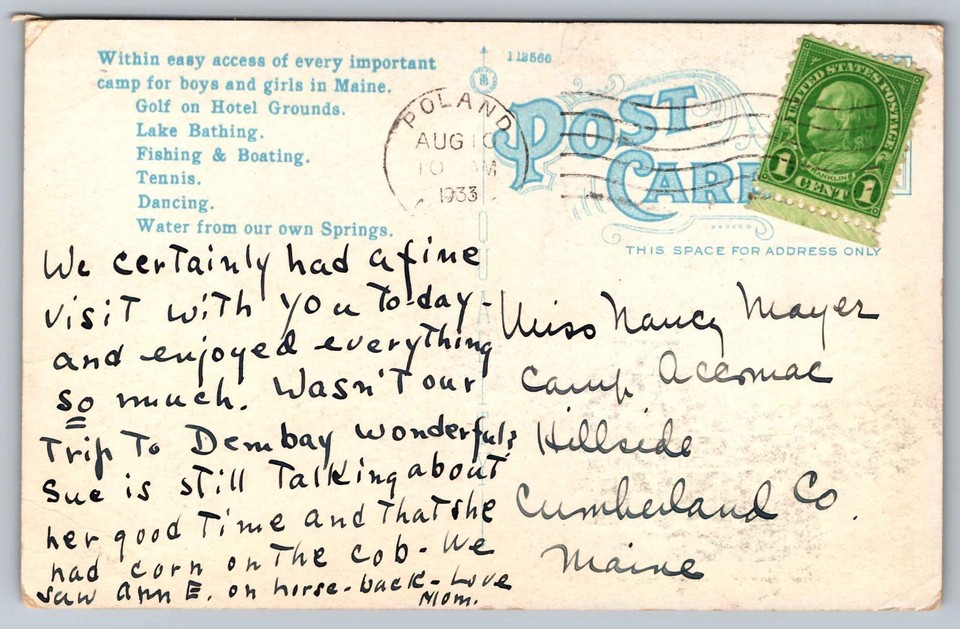 Within easy access of every important
camp for boys and girls in Maine.
Golf on Hotel Grounds.
Lake Bathing.
Fishing & Boating.
Tennis.
Dancing.
Water from our own Springs.
We certainly had a fine
visit with you to-day-
and enjoyed everything
so much. Wasn't our
Trip To Dembay wonderful?
Sue is still Talking about
her good Time and that she
had corn on the cob- We
saw Ann E. on horse-back- Love
Mom.
112566
POLAND
AUG 10
10 AM
1933
POST
CARD
UNITED STATES POSTAGE
FRANKLIN
1 CENT 1
THIS SPACE FOR ADDRESS ONLY
Miss Nancy Mayer
Camp Acermac
Hillside
Cumberland Co.
Maine